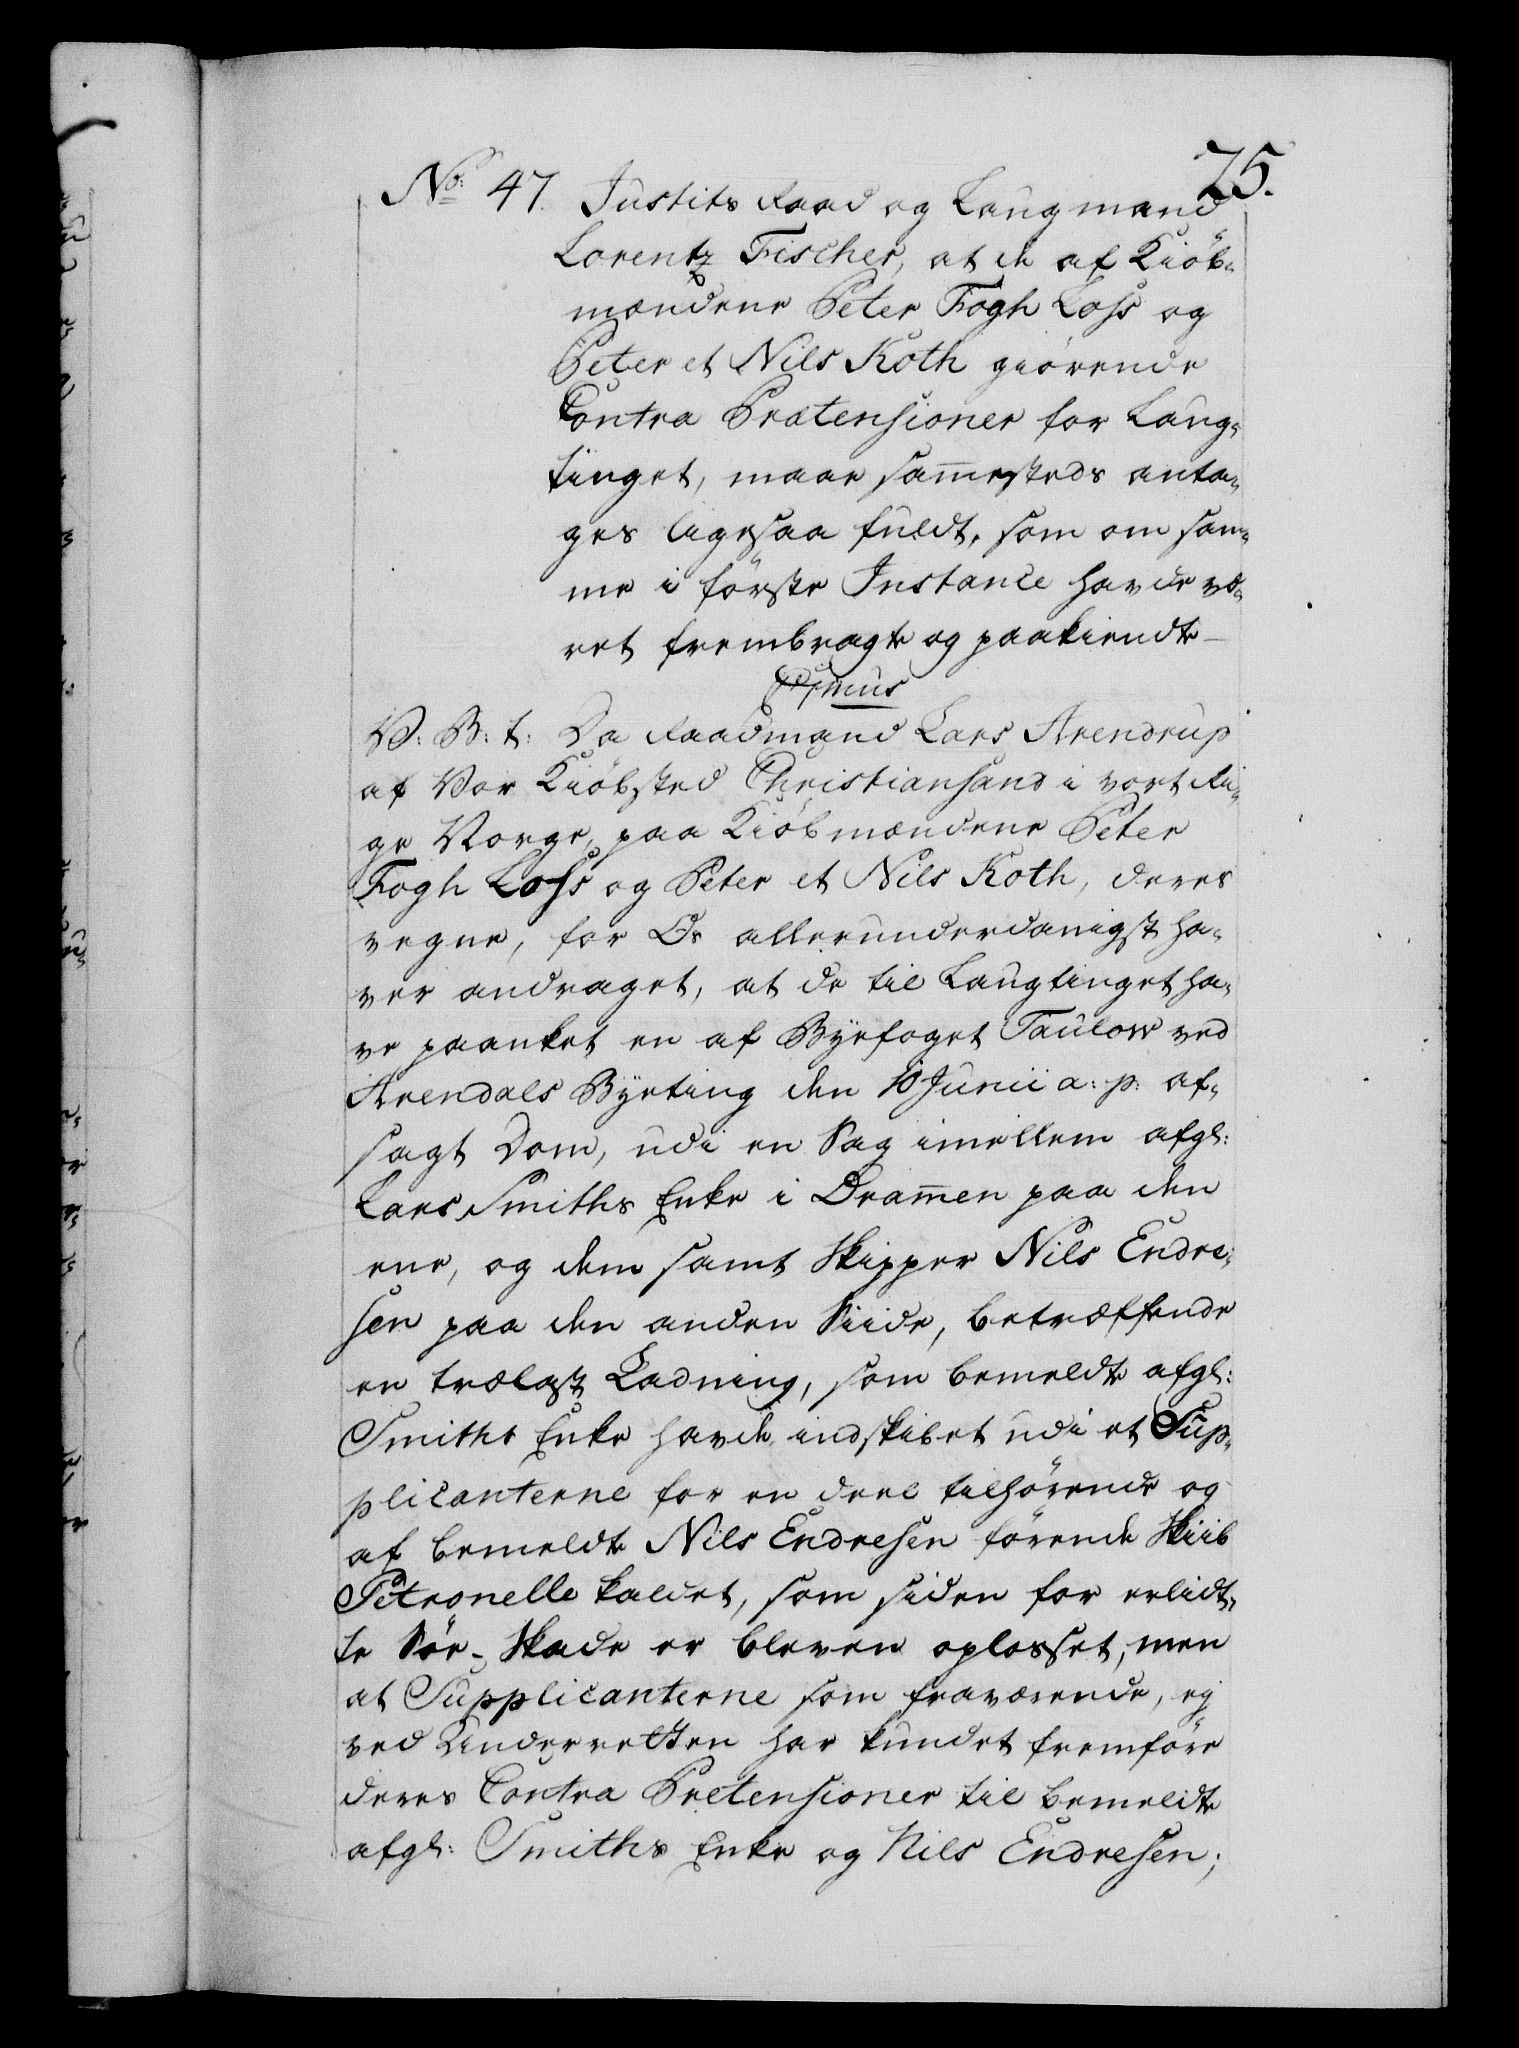 25.
No: 47. Justits Raad og Laugmand
Lorentz Fischer, at de af Kiöb-
mændene Peter Fogh Loss og
Peter et Nils Koth giörende
Contra Prætensioner for Laug-
tinget, maae sammesteds anta-
ges ligesaa fuldt, som om sam-
me i förste Instance havde væ-
ret frembragte og paakiendte
V: B: t: Da Raadmand Lars Arendrup
af Vor Kiöbsted Christiansand i vort Ri-
ge Norge, paa Kiöbmændene Peter
Fogh Loss og Peter et Nils Koth, deres
vegne, for Os allerunderdanigst ha-
ver andraget, at de til Laugtinget ha-
ve paanket en af Byefoget Taulow ved
Arendals Byeting den 10 Junii a: p: af-
sagt Dom, udi en Sag imellem afgl:
Lars Smiths Enke i Drammen paa den
ene, og dem samt Skipper Nils Endre-
sen paa den anden Siide, betræffende
en trælast Ladning, som bemeldte afgl:
Smiths Enke havde indskibet udi et Sup-
plicanterne for en deel tilhörende og
af bemeldte Nils Endresen förende Skiib
Petronelle kaldet, som siden for erlidt-
te Söe-Skade er bleven oplosset, men
at Supplicanterne som fraværende, ej
ved Underretten har kundet fremföre
deres Contra Pretensioner til bemeldte
afgl: Smiths Enke og Nils Endresen;